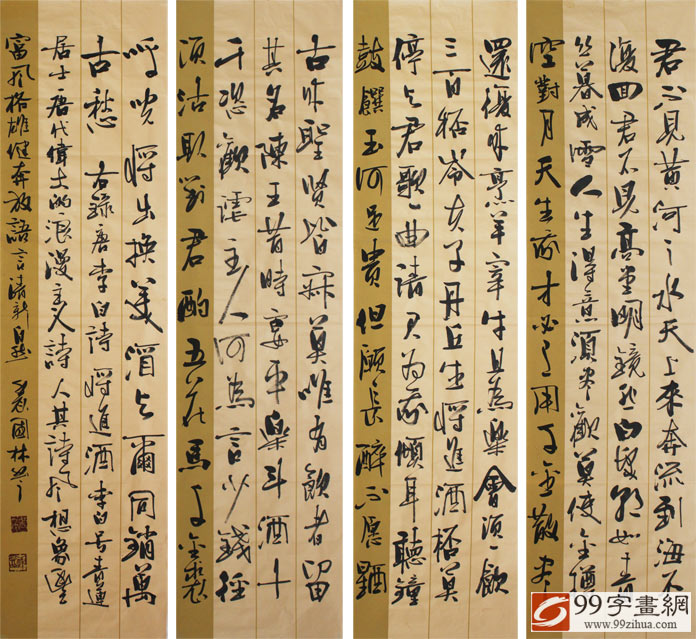 君不見黃河之水天上來奔流到海不
復回君不見高堂明鏡悲白髮朝如青
丝暮成雪人生得意須尽歡莫使金樽
空對月天生我才必有用千金散尽
還復來烹羊宰牛且為樂會須一飲
三百杯岑夫子丹丘生將進酒杯莫
停與君歌一曲請君為我傾耳聽鐘
鼓饌玉何足貴但願長醉不願醒
古來聖賢皆寂莫唯有飲者留
其名陳王昔時宴平樂斗酒十
千恣歡謔主人何為言少錢徑
須沽取對君酌五花馬千金裘
呼兒將出換美酒與爾同銷萬
古愁 右錄唐李白詩將進酒李白号青蓮
居士唐代偉大的浪漫主义詩人其詩风想象豐
富風格雄健奔放語言清新自然 國林
99字畫網
www.99zihua.com